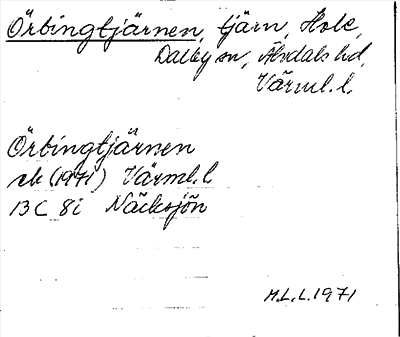 Örbingtjärnen, tjärn, Hole,
Dalby sn, Älvdals hd,
Värml. l.
Örbingtjärnen
ek (1971) Värml. l
13C 8i Näcksjön
M.L.L. 1971